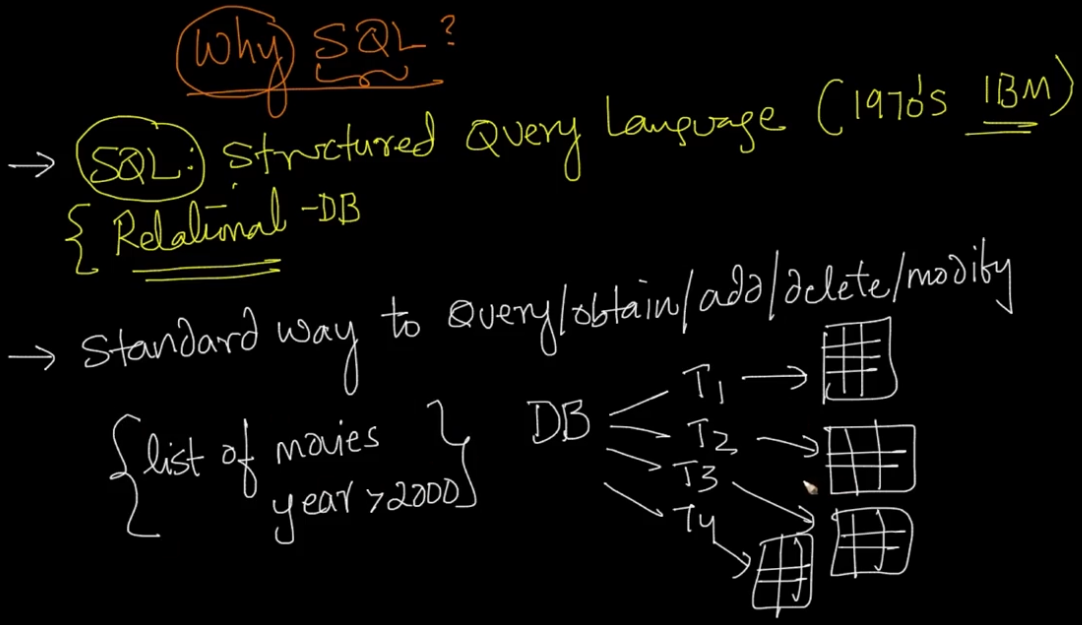 Why SQL?
→ SQL: Structured Query Language (1970's IBM)
{ Relational -DB
→ Standard way to Query/obtain/add/delete/modify
{ list of movies }
year >2000
DB
T1 →
T2 →
T3
T4